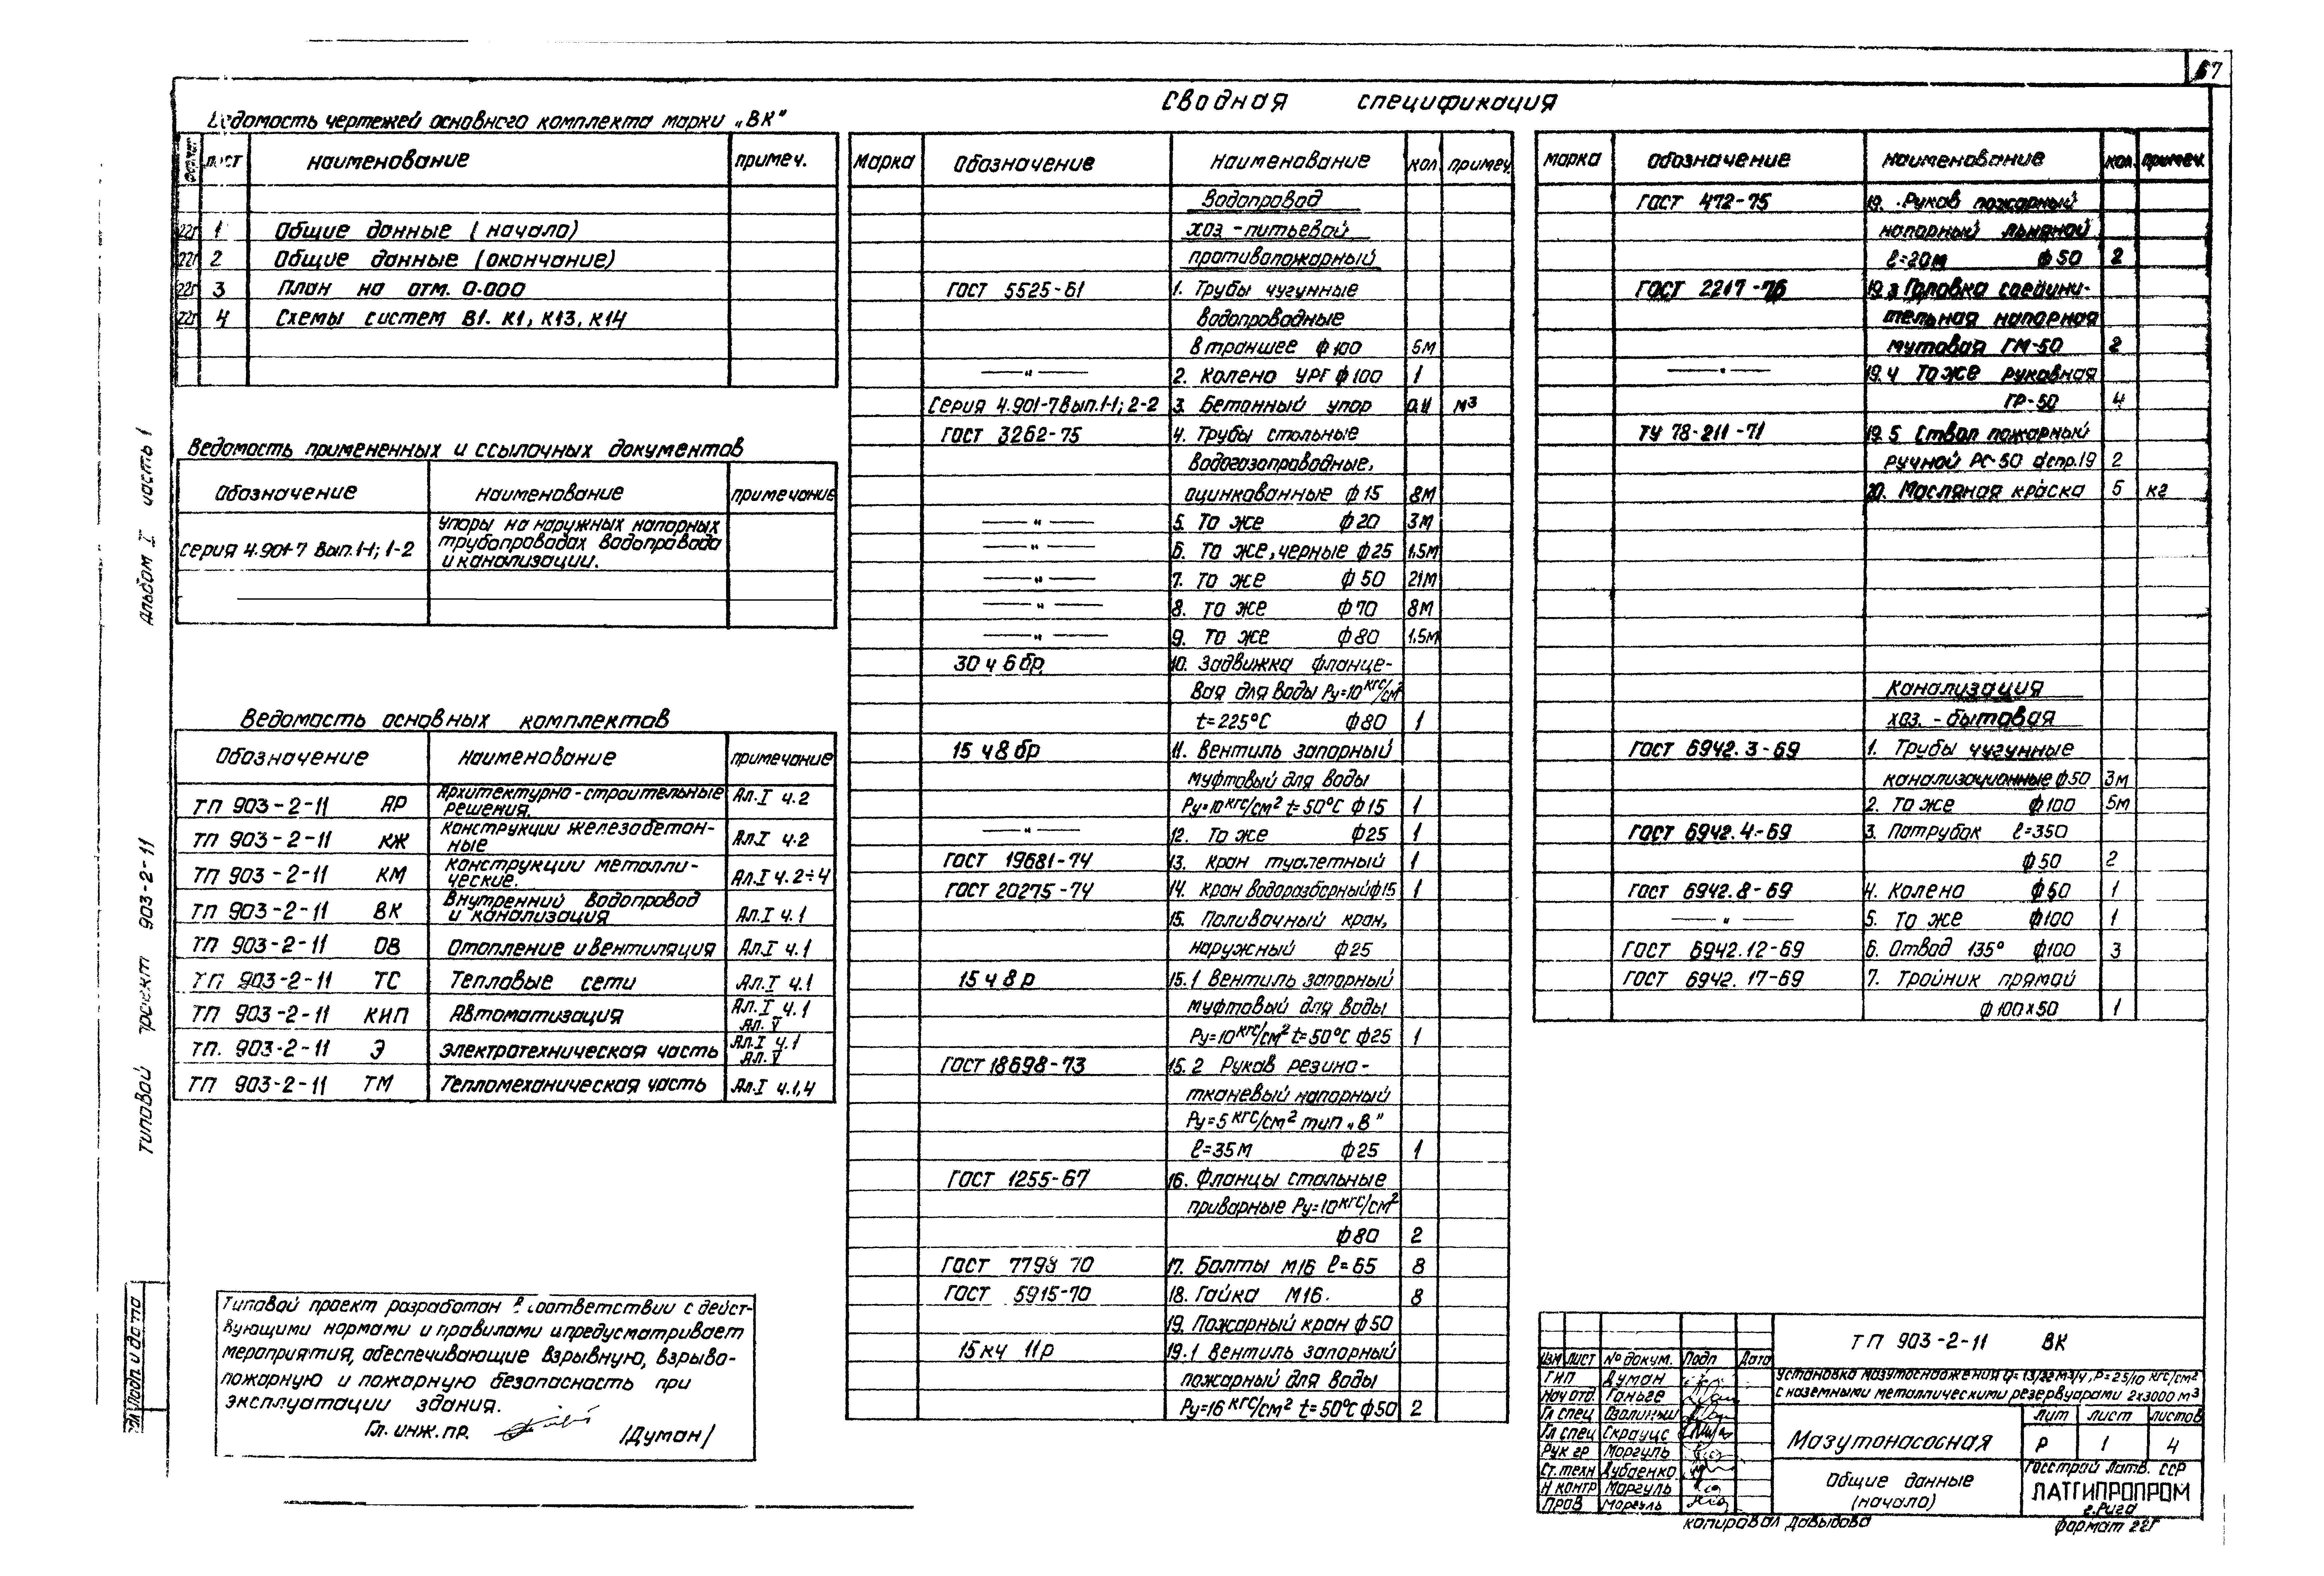 67
Сводная спецификация
Ведомость чертежей основного комплекта марки „ВК"
лист наименование примеч.
22г 1 Общие данные (начало)
22г 2 Общие данные (окончание)
22г 3 План на отм. 0.000
22г 4 Схемы систем В1. К1, К13, К14
Ведомость примененных и ссылочных документов
Обозначение наименование примечание
Серия 4.901-7 вып.1-1; 1-2
Упоры на наружных напорных
трубопроводах водопровода
и канализации.
Ведомость основных комплектов
Обозначение наименование примечание
ТП 903-2-11 АР Архитектурно-строительные решения. Ал.I ч.2
ТП 903-2-11 КЖ Конструкции железобетон-
ные Ал.I ч.2
ТП 903-2-11 КМ Конструкции металли-
ческие. Ал.I ч.2÷4
ТП 903-2-11 ВК Внутренний водопровод
и канализация Ал.I ч.1
ТП 903-2-11 ОВ Отопление и вентиляция Ал.I ч.1
ТП 903-2-11 ТС Тепловые сети Ал.I ч.1
ТП 903-2-11 КИП Автоматизация Ал.I ч.1
Ал. V
ТП. 903-2-11 Э Электротехническая часть Ал.I ч.1
Ал. V
ТП 903-2-11 ТМ Тепломеханическая часть Ал.I ч.1,4
Типовой проект разработан в соответствии с дейст-
вующими нормами и правилами и предусматривает
мероприятия, обеспечивающие взрывную, взрыво-
пожарную и пожарную безопасность при
эксплуатации здания.
Гл. инж. пр. /Думан/
Марка Обозначение Наименование кол примеч.
Водопровод
хоз-питьевой,
противопожарный
ГОСТ 5525-61 1. Трубы чугунные
водопроводные
в траншее ф100 5м
—"— 2. Колено УРГ ф100 1
Серия 4.901-7 вып.1-1; 2-2 3. Бетонный упор 0,11 м³
ГОСТ 3262-75 4. Трубы стальные
водогазопроводные,
оцинкованные ф15 8м
—"— 5. То же ф20 3м
—"— 6. То же, черные ф25 1,5м
—"— 7. То же ф50 21м
—"— 8. То же ф70 8м
—"— 9. То же ф80 1,5м
30 ч 6 бр 10. Задвижка фланце-
вая для воды Ру=10 кгс/см²
t=225°С ф80 1
15 ч 8 бр 11. Вентиль запорный
муфтовый для воды
Ру=10 кгс/см² t=50°С ф15 1
—"— 12. То же ф25 1
ГОСТ 19681-74 13. Кран туалетный 1
ГОСТ 20275-74 14. Кран водоразборный ф15 1
15. Поливочный кран,
наружный ф25
15 ч 8 р 15.1 Вентиль запорный
муфтовый для воды
Ру=10 кгс/см² t=50°С ф25 1
ГОСТ 18698-73 15.2 Рукав резино-
тканевый напорный
Ру=5 кгс/см² тип „В"
ℓ=35м ф25 1
ГОСТ 1255-67 16. Фланцы стальные
приварные Ру=10 кгс/см²
ф80 2
ГОСТ 7798 70 17. Болты М16 ℓ=65 8
ГОСТ 5915-70 18. Гайка М16. 8
19. Пожарный кран ф50
15 кч 11р 19.1 Вентиль запорный
пожарный для воды
Ру=16 кгс/см² t=50°С ф50 2
марка обозначение наименование кол. примеч.
ГОСТ 472-75 19. Рукав пожарный
напорный льняной
ℓ=20м ф50 2
ГОСТ 2217-76 19.3 Головка соедини-
тельная напорная
мутовая ГМ-50 2
—"— 19.4 То же рукавная
ГР-50 4
ТУ 78-211-71 19.5 Ствол пожарный
ручной РС-50 dспр.19 2
20. Масляная краска 5 кг
Канализация
хоз.-бытовая
ГОСТ 6942.3-69 1. Трубы чугунные
канализационные ф50 3м
2. То же ф100 5м
ГОСТ 6942.4-69 3. Патрубок ℓ=350
ф50 2
ГОСТ 6942.8-69 4. Колено ф50 1
—"— 5. То же ф100 1
ГОСТ 6942.12-69 6. Отвод 135° ф100 3
ГОСТ 6942.17-69 7. Тройник прямой
ф100×50 1
ТП 903-2-11 ВК
Изм лист № докум. Подп Дата
ГИП Думан
Нач отд. Ганьге
Гл спец Озолиньш
Гл спец Скрауцс
Рук гр Моргуль
Ст. техн Дубаенко
Н контр Моргуль
Пров Моргуль
Установка мазутоснабжения Q=13/22 м3/ч, Р=25/10 кгс/см2
с наземными металлическими резервуарами 2×3000 м3
Мазутонасосная
лит лист листов
Р 1 4
Общие данные
(начало)
Госстрой Латв. ССР
ЛАТГИПРОПРОМ
г.Рига
копировал Давыдова формат 22Г
Альбом I часть 1
Типовой проект 903-2-11
Подп и дата